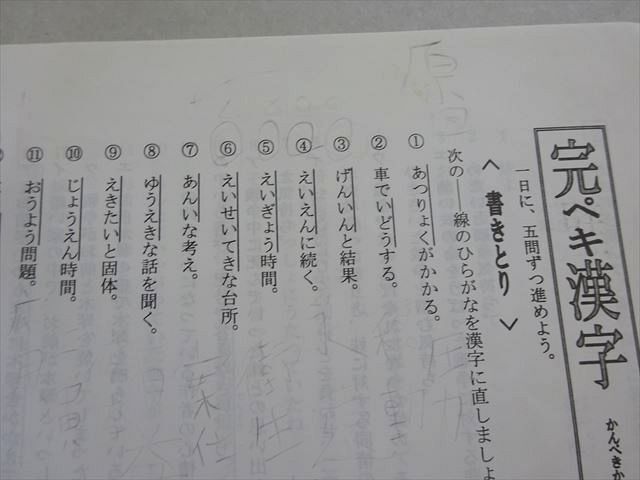 完ペキ漢字
かんぺきか
一日に、五問ずつ進めよう。
＜書きとり＞
次の――線のひらがなを漢字に直しましょ
① あつりょくがかかる。
② 車でいどうする。
③ げんいんと結果。
④ えいえんに続く。
⑤ えいぎょう時間。
⑥ えいせいてきな台所。
⑦ あんいな考え。
⑧ ゆうえきな話を聞く。
⑨ えきたいと固体。
⑩ じょうえん時間。
⑪ おうよう問題。